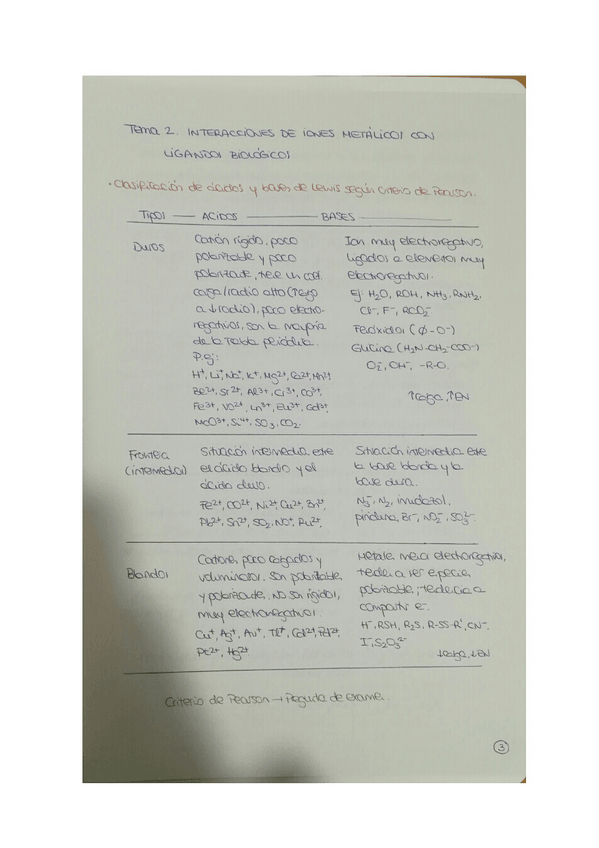 Tema 2. INTERACCIONES DE IONES METÁLICOS CON
LIGANDOS BIOLÓGICOS
· Clasificación de ácidos y bases de Lewis según criterio de Pearson.
TIPOS — ACIDOS — BASES
Duros
Catión rígido, poco
polarizable y poco
polarizado, tiene un coef.
carga/radio alto (↑carga
a ↓radio), poco electro-
negativos, son la mayoría
de la Tabla periódica.
P.ej:
H⁺, Li⁺, Na⁺, K⁺, Mg²⁺, Ca²⁺, Mn²⁺
Be²⁺, Sr²⁺, Al³⁺, Cr³⁺, Co³⁺,
Fe³⁺, VO²⁺, Ln³⁺, Eu³⁺, Gd³⁺,
MoO³⁺, Si⁴⁺, SO₃, CO₂.
Ion muy electronegativo,
ligados a elementos muy
electronegativos.
Ej: H₂O, ROH, NH₃, RNH₂,
Cl⁻, F⁻, RCO₂⁻
Peróxidos
Glicina (H₂N-CH₂-COO⁻)
OH⁻, -R-O.
↑carga, ↑EN
Frontera
(intermedia)
Situación intermedia entre
el ácido blando y el
ácido duro.
Fe²⁺, CO²⁺, Ni²⁺, Cu²⁺, Zn²⁺,
Pb²⁺, Sn²⁺, SO₂, NO⁺, Ru²⁺,
Situación intermedia entre
la base blanda y la
base dura.
N₃⁻, N₂, imidazol,
piridina, Br⁻, NO₂⁻, SO₃²⁻
Blandos
Cationes poco cargados y
voluminosos. Son polarizables
y polarizados, NO son rígidos,
muy electronegativos.
Cu⁺, Ag⁺, Au⁺, Tl⁺, Cd²⁺, Pd²⁺,
Pt²⁺, Hg²⁺
electronegativos,
tiende a ser especie
polarizable, tendencia a
compartir e.
H⁻, RSH, R₂S, R-SS-R', CN⁻,
I⁻, S₂O₃²⁻
↓carga, ↓EN
Criterio de Pearson → Pregunta de examen.
3